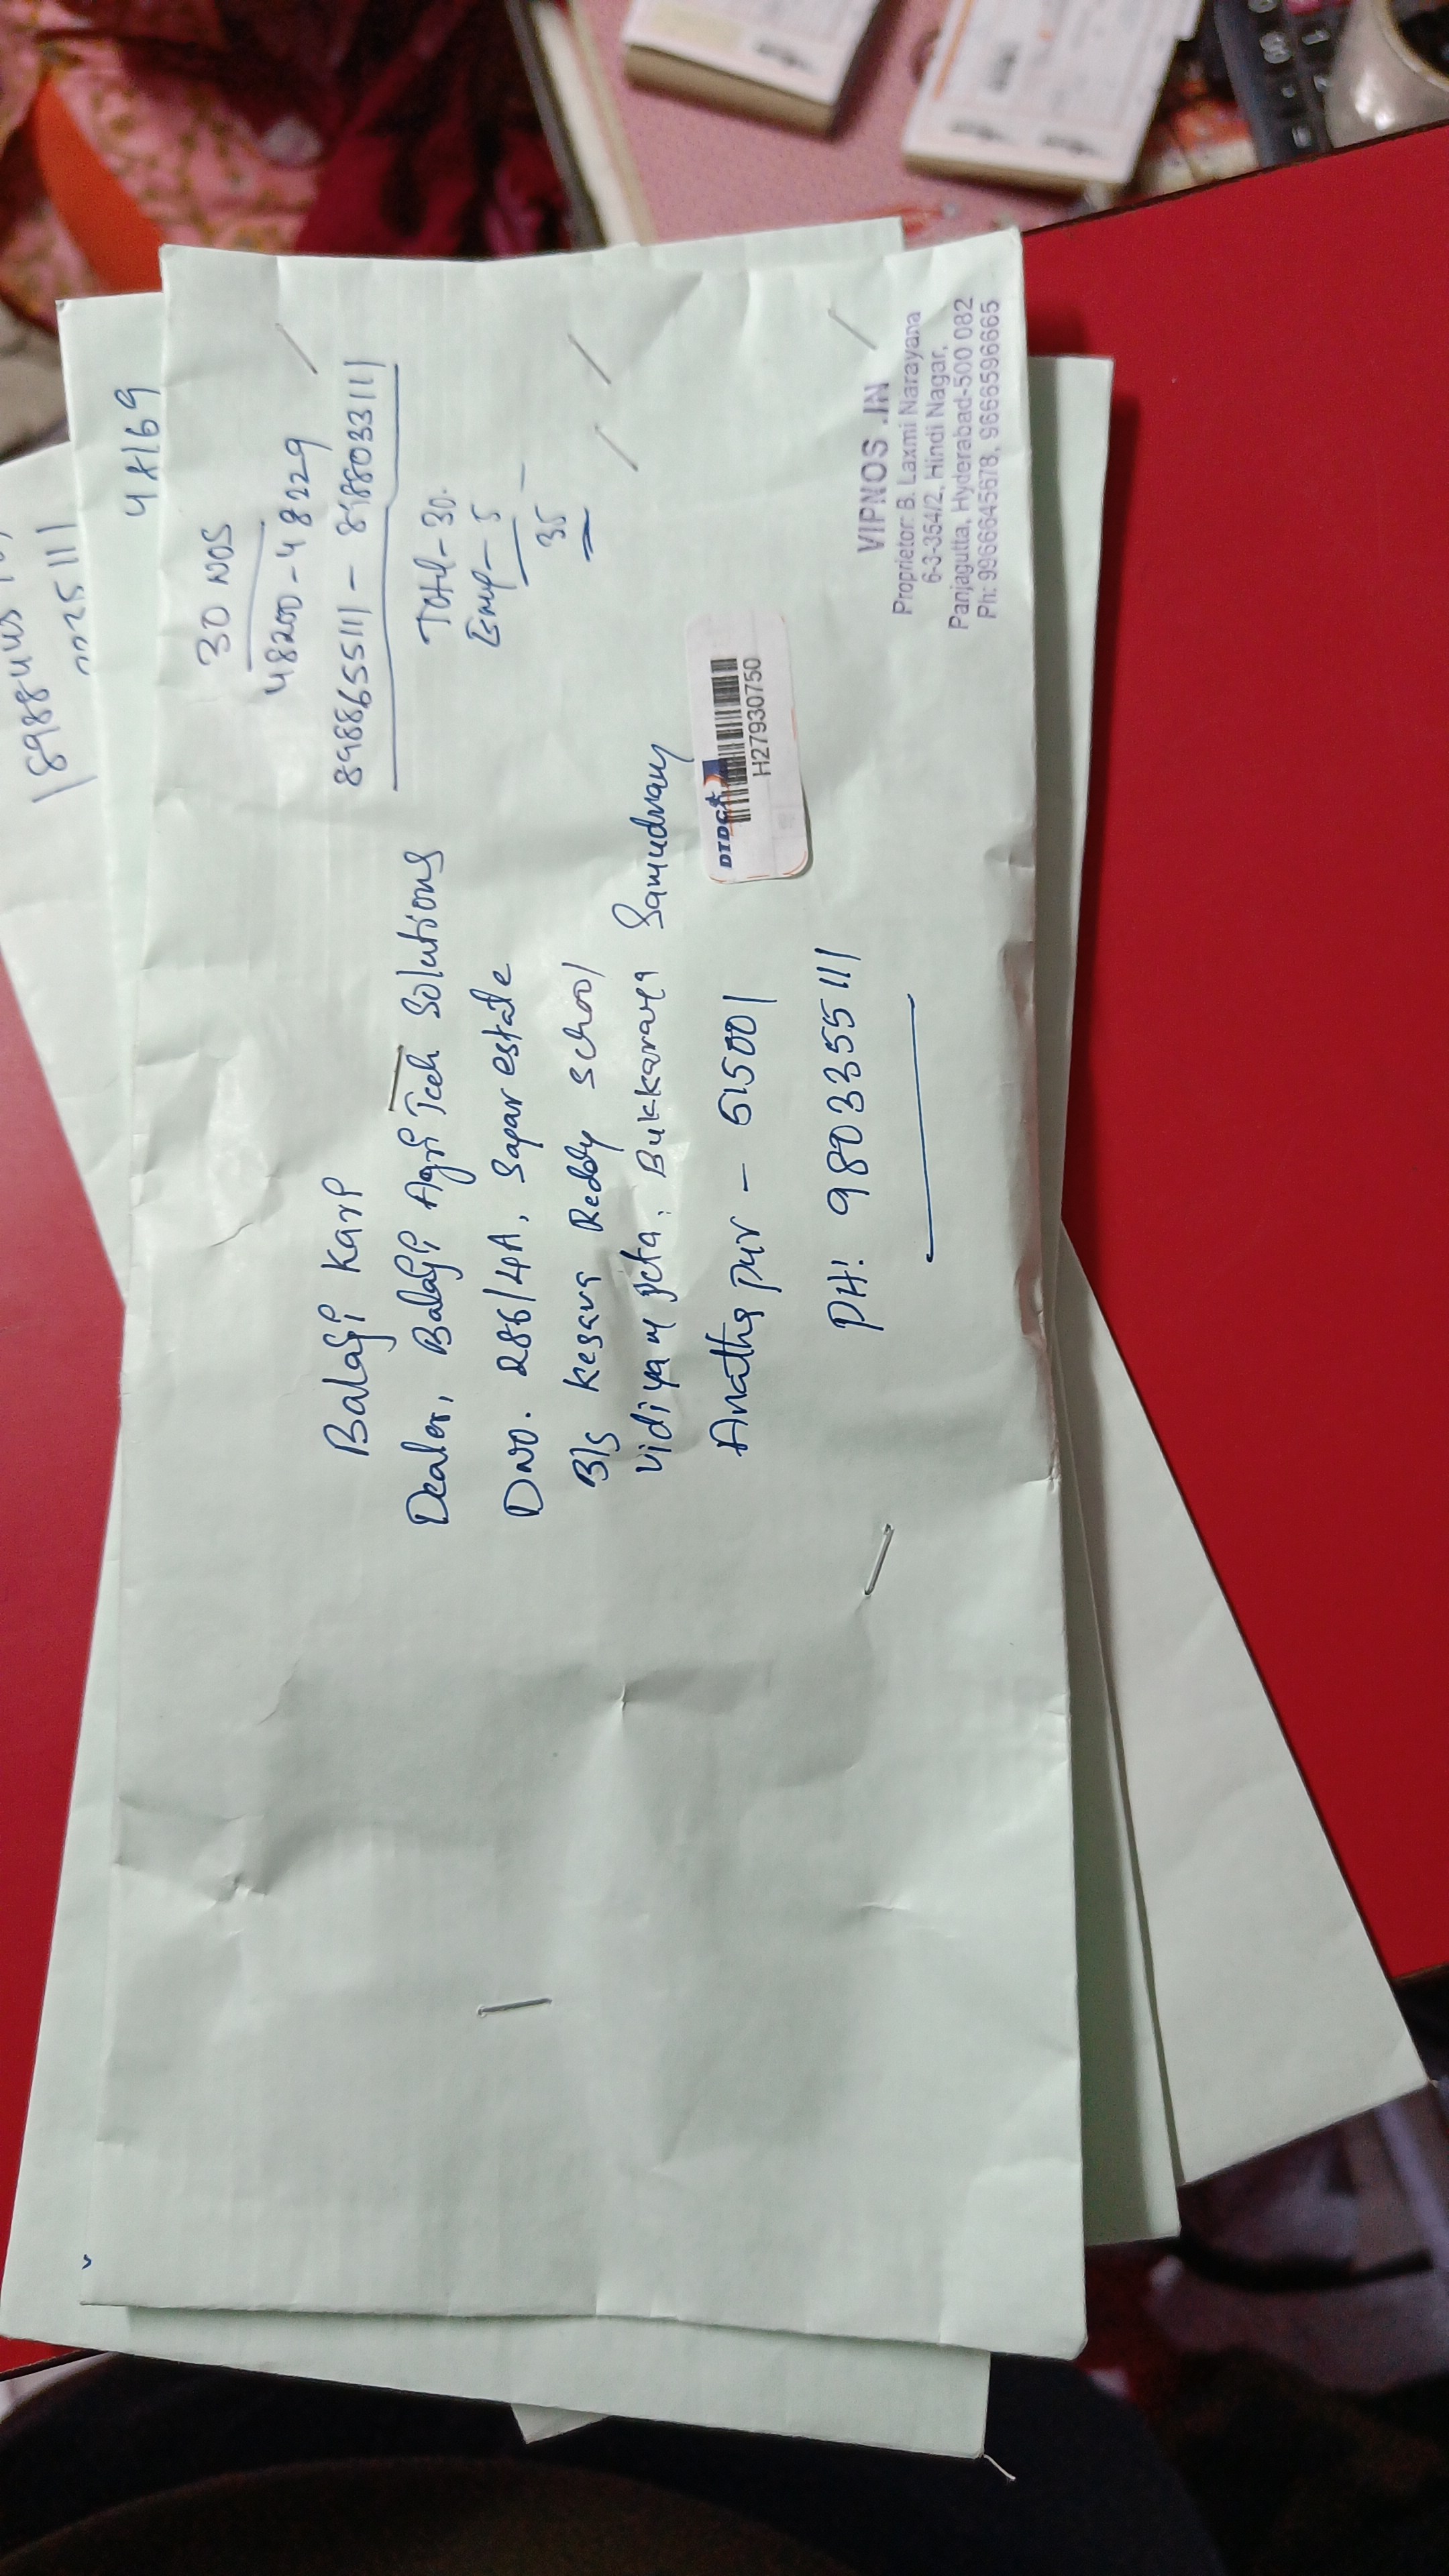 48169
30 NOS
48200 - 48229
8988655111 - 8988033111
Total - 30.
Emp - 5
35
Balaji Karp
Dealer, Balaji Agri Tech Solutions
Dno. 286/4A, Sapar estate
B/s Kesava Reddy School
Vidiyam peta, Bukkaraya Samudram
Anatha pur - 515001
PH: 9803355111
DTDC
H27930750
VIPNOS .IN
Proprietor: B. Laxmi Narayana
6-3-354/2, Hindi Nagar,
Panjagutta, Hyderabad-500 082
Ph: 9966645678, 9666596665